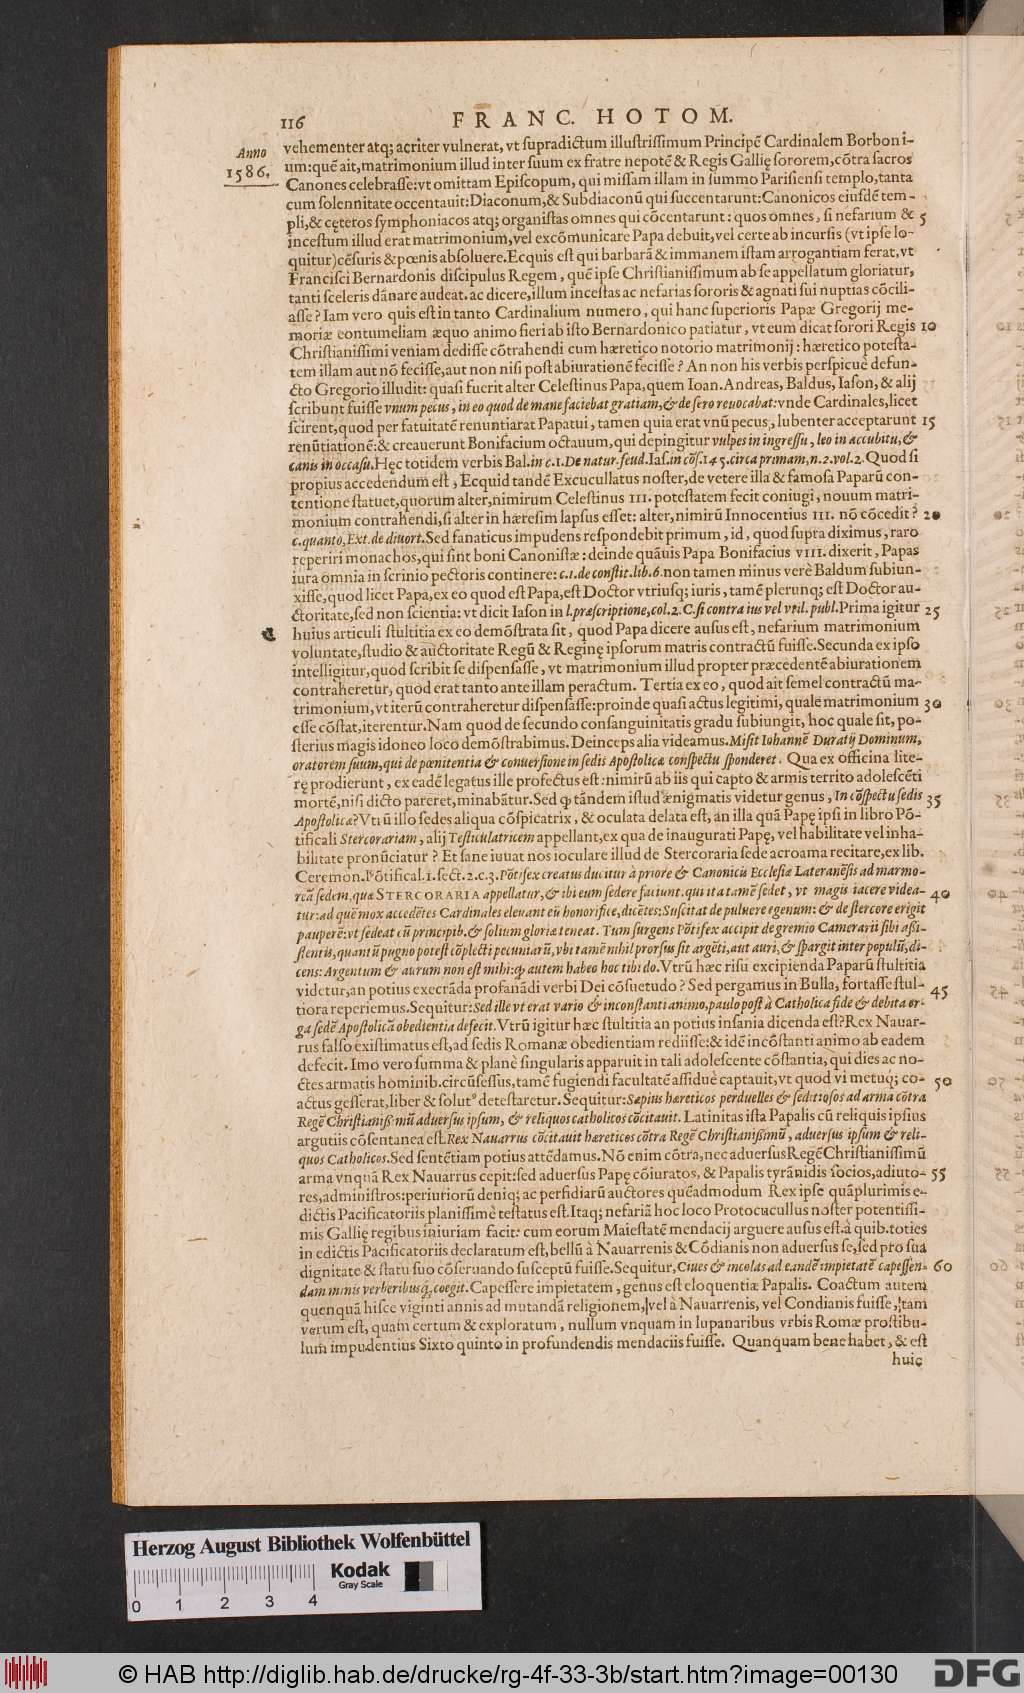 116
FRANC. HOTOM.
Anno
1586.
vehementer atq; acriter vulnerat, vt supradictum illustrissimum Principē Cardinalem Borboni-
um: quē ait, matrimonium illud inter suum ex fratre nepotē & Regis Gallię sororem, cōtra sacros
Canones celebrasse: vt omittam Episcopum, qui missam illam in summo Parisiensi templo, tanta
cum solennitate occentauit: Diaconum, & Subdiaconū qui succentarunt: Canonicos eiusdē tem-
pli, & cęteros symphoniacos atq; organistas omnes qui cōcentarunt: quos omnes, si nefarium & 5
incestum illud erat matrimonium, vel excōmunicare Papa debuit, vel certe ab incursis (vt ipse lo-
quitur) cēsuris & pœnis absoluere. Ecquis est qui barbarā & immanem istam arrogantiam ferat, vt
Francisci Bernardonis discipulus Regem, quē ipse Christianissimum ab se appellatum gloriatur,
tanti sceleris dānare audeat. ac dicere, illum incestas ac nefarias sororis & agnati sui nuptias cōcili-
asse? Iam vero quis est in tanto Cardinalium numero, qui hanc superioris Papæ Gregorij me-
moriæ contumeliam æquo animo fieri ab isto Bernardonico patiatur, vt eum dicat sorori Regis 10
Christianissimi veniam dedisse cōtrahendi cum hæretico notorio matrimonij: hæretico potesta-
tem illam aut nō fecisse, aut non nisi post abiurationē fecisse? An non his verbis perspicuè defun-
cto Gregorio illudit: quasi fuerit alter Celestinus Papa, quem Ioan. Andreas, Baldus, Iason, & alij
scribunt fuisse vnum pecus, in eo quod de mane faciebat gratiam, & de sero reuocabat: vnde Cardinales, licet
scirent, quod per fatuitatē renuntiarat Papatui, tamen quia erat vnū pecus, lubenter acceptarunt 15
renūtiationē: & creauerunt Bonifacium octauum, qui depingitur vulpes in ingressu, leo in accubitu, &
canis in occasu. Hęc totidem verbis Bal. in c. 1. De natur. feud. Ias. in cōs. 145. circa primam, n. 2. vol. 2. Quod si
propius accedendum est, Ecquid tandē Excucullatus noster, de vetere illa & famosa Paparū con-
tentione statuet, quorum alter, nimirum Celestinus III. potestatem fecit coniugi, nouum matri-
monium contrahendi, si alter in hæresim lapsus esset: alter, nimirū Innocentius III. nō cōcedit? 20
c. quanto, Ext. de diuort. Sed fanaticus impudens respondebit primum, id, quod supra diximus, raro
reperiri monachos, qui sint boni Canonistæ: deinde quāuis Papa Bonifacius VIII. dixerit, Papas
iura omnia in scrinio pectoris continere: c. 1. de constit. lib. 6. non tamen minus verè Baldum subiun-
xisse, quod licet Papa, ex eo quod est Papa, est Doctor vtriusq; iuris, tamē plerunq; est Doctor au-
ctoritate, sed non scientia: vt dicit Iason in l. præscriptione, col. 2. C. si contra ius vel vtil. publ. Prima igitur 25
huius articuli stultitia ex eo demōstrata sit, quod Papa dicere ausus est, nefarium matrimonium
voluntate, studio & auctoritate Regū & Reginę ipsorum matris contractū fuisse. Secunda ex ipso
intelligitur, quod scribit se dispensasse, vt matrimonium illud propter præcedentē abiurationem
contraheretur, quod erat tanto ante illam peractum. Tertia ex eo, quod ait semel contractū ma-
trimonium, vt iterū contraheretur dispensasse: proinde quasi actus legitimi, quale matrimonium 30
esse cōstat, iterentur. Nam quod de secundo consanguinitatis gradu subiungit, hoc quale sit, po-
sterius magis idoneo loco demōstrabimus. Deinceps alia videamus. Misit Iohannē Duratij Dominum,
oratorem suum, qui de pœnitentia & conuersione in sedis Apostolicæ conspectu sponderet. Qua ex officina lite-
rę prodierunt, ex eadē legatus ille profectus est: nimirū ab iis qui capto & armis territo adolescēti
mortē, nisi dicto pareret, minabātur. Sed qƿ tādem istud ænigmatis videtur genus, In cōspectu sedis 35
Apostolicæ? Vtrū illo sedes aliqua cōspicatrix, & oculata delata est, an illa quā Papę ipsi in libro Pō-
tificali Stercorariam, alij Testiculatricem appellant, ex qua de inaugurati Papę, vel habilitate vel inha-
bilitate pronūciatur? Et sane iuuat nos ioculare illud de Stercoraria sede acroama recitare, ex lib.
Ceremon. Pōtifical. 1. sect. 2. c. 3. Pōtifex creatus ducitur à priore & Canonicis Ecclesiæ Lateranēsis ad marmo-
reā sedem, quæ STERCORARIA appellatur, & ibi eum sedere faciunt. qui ita tamē sedet, vt magis iacere videa- 40
tur: ad quē mox accedētes Cardinales eleuant eū honorifice, dicētes: Suscitat de puluere egenum: & de stercore erigit
pauperē: vt sedeat cū principib. & solium gloriæ teneat. Tum surgens Pōtifex accipit de gremio Camerarii sibi aßi-
stentis, quantū pugno potest cōplecti pecuniarū, vbi tamē nihil prorsus sit argēti, aut auri, & spargit inter populū, di-
cens: Argentum & aurum non est mihi: qƿ autem habeo hoc tibi do. Vtrū hæc risu excipienda Paparū stultitia
videtur, an potius execrāda profanādi verbi Dei cōsuetudo? Sed pergamus in Bulla, fortasse stul-
tiora reperiemus. Sequitur: Sed ille vt erat vario & inconstanti animo, paulo post à Catholica fide & debita er- 45
ga sedē Apostolicā obedientia defecit. Vtrū igitur hæc stultitia an potius insania dicenda est? Rex Nauar-
rus falso existimatus est, ad sedis Romanæ obedientiam rediisse: & idē incōstanti animo ab eadem
defecit. Imo vero summa & planè singularis apparuit in tali adolescente cōstantia, qui dies ac no-
ctes armatis hominib. circūsessus, tamē fugiendi facultatē assiduè captauit, vt quod vi metuq; co- 50
actus gesserat, liber & solutꝰ detestaretur. Sequitur: Sæpius hæreticos perduelles & seditiosos ad arma cōtra
Regē Christianiß. mū aduersus ipsum, & reliquos catholicos cōcitauit. Latinitas ista Papalis cū reliquis ipsius
argutiis cōsentanea est. Rex Nauarrus cōcitauit hæreticos cōtra Regē Christianißimū, aduersus ipsum & reli-
quos Catholicos. Sed sentētiam potius attēdamus. Nō enim cōtra, nec aduersus Regē Christianissimū
arma vnquā Rex Nauarrus cepit: sed aduersus Papę cōiuratos, & Papalis tyrānidis socios, adiuto- 55
res, administros: periuriorū deniq; ac perfidiarū auctores quēadmodum Rex ipse quāplurimis e-
dictis Pacificatoriis planissimè testatus est. Itaq; nefariā hoc loco Protocucullus noster potentissi-
mis Gallię regibus iniuriam facit: cum eorum Maiestatē mendacij arguere ausus est. à quib. toties
in edictis Pacificatoriis declaratum est, bellū à Nauarrenis & Cōdianis non aduersus se, sed pro sua
dignitate & statu suo cōseruando susceptū fuisse. Sequitur, Ciues & incolas ad eandē impietatē capessen- 60
dam minis verberibusq́; coegit. Capessere impietatem, genus est eloquentiæ Papalis. Coactum autem
quenquā hisce viginti annis ad mutandā religionem, vel à Nauarrenis, vel Condianis fuisse, tam
verum est, quam certum & exploratum, nullum vnquam in lupanaribus vrbis Romæ prostibu-
lum impudentius Sixto quinto in profundendis mendaciis fuisse. Quanquam bene habet, & est
huic
Herzog August Bibliothek Wolfenbüttel
Kodak
Gray Scale
0 1 2 3 4
© HAB http://diglib.hab.de/drucke/rg-4f-33-3b/start.htm?image=00130
DFG